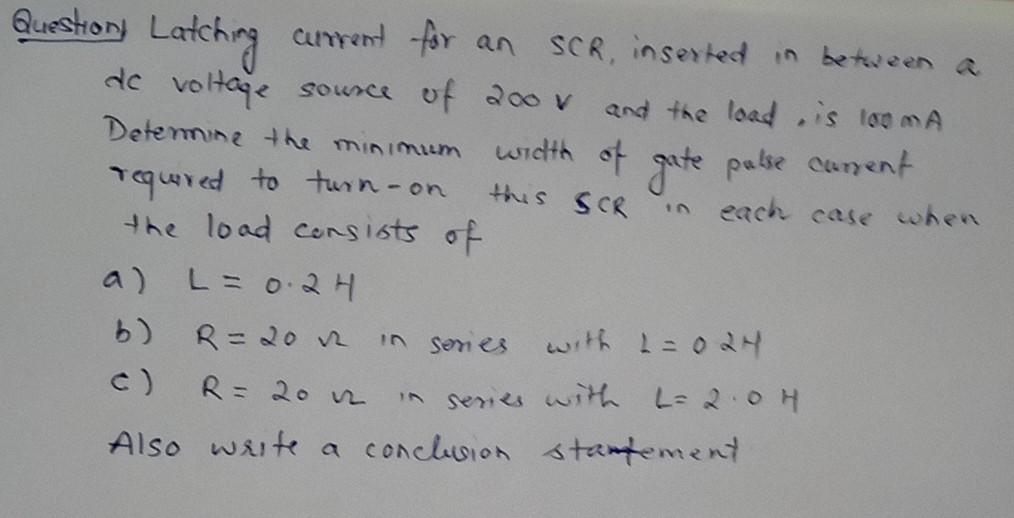 Question) Latching current for an SCR, inserted in between a
dc voltage source of 200 V and the load, is 100 mA
Determine the minimum width of gate pulse current
required to turn-on this SCR in each case when
the load consists of
a) L = 0.2 H
b) R = 20 Ω in series with L = 0.2H
c) R = 20 Ω in series with L = 2.0 H
Also write a conclusion statement